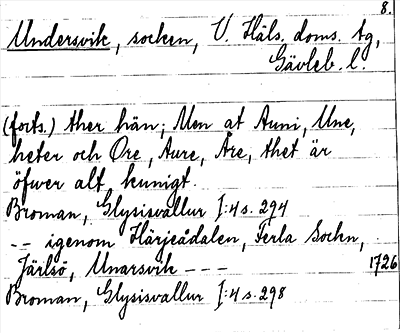 8.
Undersvik, socken, V. Häls. doms. tg,
Gävleb. l.
(forts.) ther hän; Men at Auni, Une,
heter och Öre, Aure, Are, thet är
öfwer alt kunigt.
Broman, Glysisvallur I:4 s. 294
-- igenom Härjeådalen, Ferla Sochn,
Järlsö, Unarsvik --- 1726
Broman, Glysisvallur I:4 s. 298